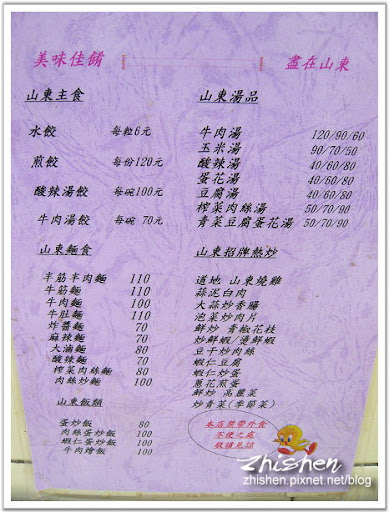 美味佳餚
盡在山東
山東主食
水餃 每粒6元
煎餃 每份120元
酸辣湯餃 每碗100元
牛肉湯餃 每碗 70元
山東麵食
半筋半肉麵 110
牛筋麵 110
牛肉麵 100
牛肚麵 110
炸醬麵 70
麻辣麵 70
大滷麵 80
酸辣麵 70
榨菜肉絲麵 80
肉絲炒麵 100
山東飯類
蛋炒飯 80
肉絲蛋炒飯 100
蝦仁蛋炒飯 100
牛肉燴飯 100
山東湯品
牛肉湯 120/90/60
玉米湯 90/70/50
酸辣湯 40/60/80
蛋花湯 40/60/80
豆腐湯 40/60/80
榨菜肉絲湯 50/70/90
青菜豆腐蛋花湯 50/70/90
山東招牌熱炒
道地 山東燒雞
蒜泥白肉
大蒜炒香腸
泡菜炒肉片
鮮炒 青椒花枝
炒鮮蝦/燙鮮蝦
豆干炒肉絲
蝦仁豆腐
蝦仁炒蛋
蔥花煎蛋
鮮炒 高麗菜
炒青菜(季節菜)
本店禁帶外食
不便之處
敬請見諒
zhishen
zhishen.pixnet.net/blog